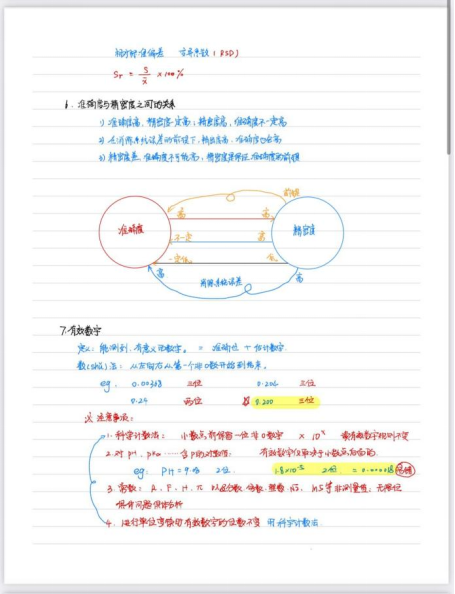 相对标准偏差 变异系数（RSD）
Sr = S/x̄ × 100%
6. 准确度与精密度之间的关系
1) 准确度高，精密度一定高；精密度高，准确度不一定高
2) 在消除系统误差的前提下，精密度高，准确度也会高
3) 精密度差，准确度不可能高，精密度是保证准确度的前提
前提
准确度 高 高 精密度
不一定 高
一定低 低
高 消除系统误差 高
7. 有效数字
定义：能测到，有意义的数字。 = 准确位 + 估计数字
数(shǔ)法：从左向右从第一个非0数开始到结束。
eg. 0.00308 三位 0.204 三位
0.24 两位 0.200 三位
注意事项：
1. 科学计数法： 小数点前保留一位非0数字 × 10ˣ 有效数字规则不变
2. 对 pH、pKa …… 含p的对数值： 有效数字位数决于小数点后面的
eg: pH = 9. 2位. 1.8×10⁻⁵ 2位. = 0.000018
3. 常数： R、F、π 以及分数 倍数 等非测量值，无限位
保留问题具体分析
4. 进行单位变换时有效数字的位数不变 用科学计数法